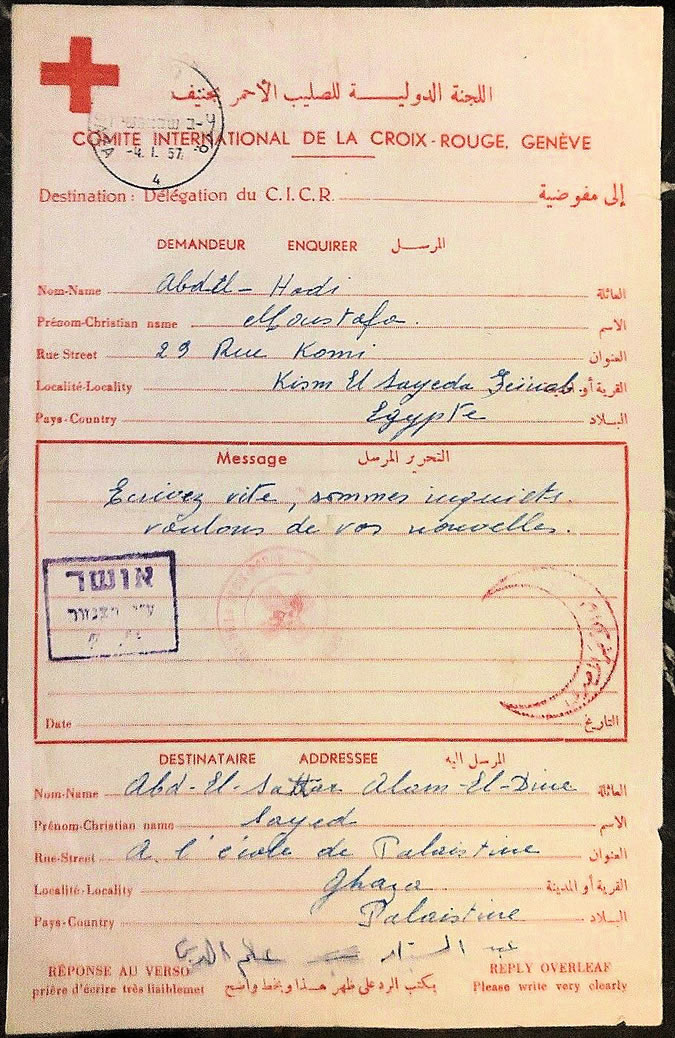 اللجنة الدولية للصليب الأحمر بجنيف
COMITE INTERNATIONAL DE LA CROIX-ROUGE, GENÈVE
-4. 1. 57.
4
Destination: Délégation du C.I.C.R. إلى مفوضية
DEMANDEUR ENQUIRER المرسل
Nom-Name Abdel-Hadi العائلة
Prénom-Christian name Moustafa. الاسم
Rue Street 29 Rue Komi العنوان
Localité-Locality Kism El Sayeda Zeinab. القرية أو
Pays-Country Egypte البلاد
Message التحرير المرسل
Ecrivez vite, sommes inquiets.
voulons de vos nouvelles.
אושר
ע"י הצנזור
Date التاريخ
DESTINATAIRE ADDRESSEE المرسل اليه
Nom-Name Abd-El-Sattar Alam-El-Dine العائلة
Prénom-Christian name Sayed الاسم
Rue-Street A l'école de Palaistine العنوان
Localité-Locality Ghaza القرية أو المدينة
Pays-Country Palaistine البلاد
عبد الستار علم الدين
RÉPONSE AU VERSO REPLY OVERLEAF
prière d'écrire très lisiblemet يكتب الرد على ظهر هذا وبخط واضح Please write very clearly